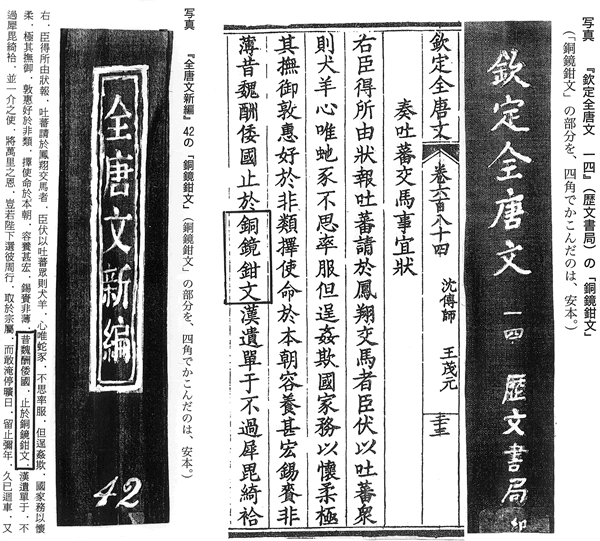 写真　『欽定全唐文　一四』（歴文書局）の「銅鏡鉗文」
（「銅鏡鉗文」の部分を、四角でかこんだのは、安本。）
欽定全唐文　一四　歴文書局　印
欽定全唐文　卷六百八十四　沈傳師　王茂元
奏吐蕃交馬事宜狀
右臣得所由狀報吐蕃請於鳳翔交馬者臣伏以吐蕃衆
則犬羊心唯虵豕不思率服但逞姦欺國家務以懷柔極
其撫御敦惠好於非類擇使命於本朝容養甚宏錫賚非
薄昔魏酬倭國止於銅鏡鉗文漢遺單于不過犀毘綺袷
写真　『全唐文新編』42の「銅鏡鉗文」（「銅鏡鉗文」の部分を、四角でかこんだのは、安本。）
全唐文新編
42
右、臣得所由狀報、吐蕃請於鳳翔交馬者、臣伏以吐蕃眾則犬羊、心唯蛇豕、不思率服、但逞姦欺、國家務以懷
柔、極其撫御、敦惠好於非類、擇使命於本朝、容養甚宏、錫賚非薄、昔魏酬倭國、止於銅鏡鉗文、漢遺單于、不
過犀毘綺袷、並一介之使、將萬里之恩、豈若陛下選彼周行、取於宗屬、而敢淹停曠日、留止彌年、久已迴車、又